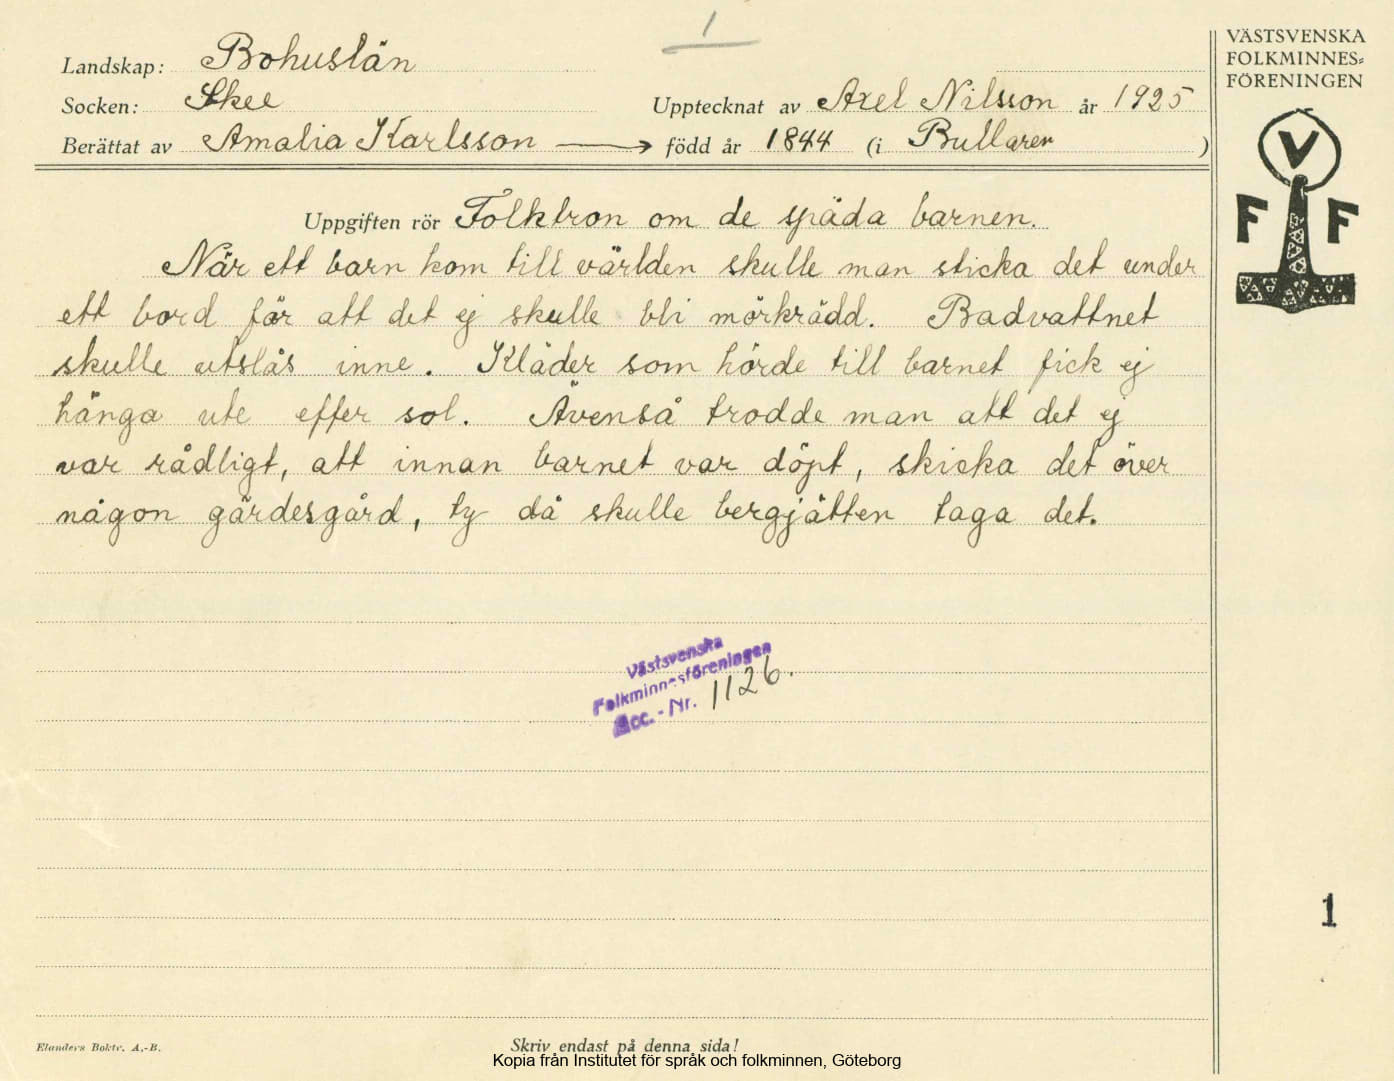 1
Landskap: Bohuslän
Socken: Skee
Upptecknat av Axel Nilsson år 1925
Berättat av Amalia Karlsson → född år 1844 (i Bullaren )
VÄSTSVENSKA
FOLKMINNES=
FÖRENINGEN
V
F F
Uppgiften rör Folktron om de späda barnen.
När ett barn kom till världen skulle man sticka det under
ett bord för att det ej skulle bli mörkrädd. Badvattnet
skulle utslås inne. Kläder som hörde till barnet fick ej
hänga ute effer sol. Ävenså trodde man att det ej
var rådligt, att innan barnet var döpt, skicka det över
någon gärdesgård, ty då skulle bergjätten taga det.
Västsvenska
Folkminnesföreningen
Acc. - Nr. 1126.
1
Elanders Boktr. A.-B.
Skriv endast på denna sida!
Kopia från Institutet för språk och folkminnen, Göteborg